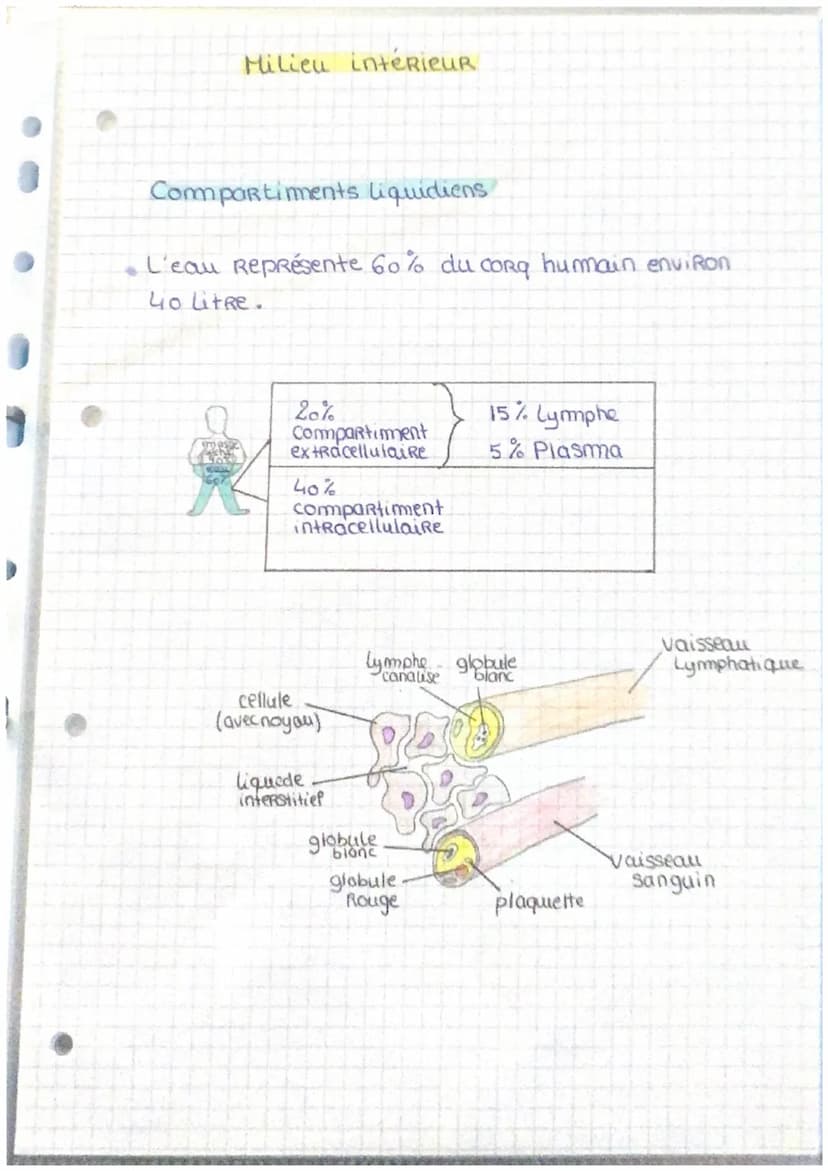 Milieu intérieur
Compartiments liquidiens
• L'eau représente 60% du corq humain environ
40 litre.
20%
compartiment
extracellulaire
15% Lymphe
5% Plasma
masse
60%
40%
compartiment
intracellulaire
vaisseau
Lymphatique
Lymphe
canalise
globule
blanc
cellule
(avec noyau)
liquede
interstitief
globule
blanc
globule
Rouge
plaquette
vaisseau
sanguin